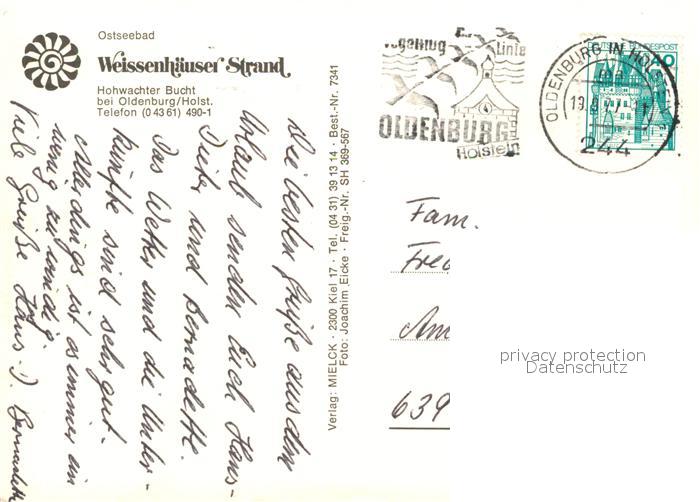 Ostseebad
Weissenhäuser Strand
Hohwachter Bucht
bei Oldenburg/Holst.
Telefon (0 43 61) 490-1
Die besten Grüße aus dem
Urlaub senden Euch Hans-
Dieter und Bernadette.
Das Wetter und die Unter-
künfte sind sehr gut.
Allerdings ist es immer ein
wenig zu windig.
Viele Grüße Hans-D. Bernadette
Verlag: MIELCK · 2300 Kiel 17 · Tel. (04 31) 39 13 14 · Best.-Nr. 7341
Foto: Joachim Eicke · Freig.-Nr. SH 369-567
Vogelflug Linie
OLDENBURG
Holstein
OLDENBURG IN HOLST
244
DEUTSCHE BUNDESPOST
40
Fam.
639
privacy protection
Datenschutz